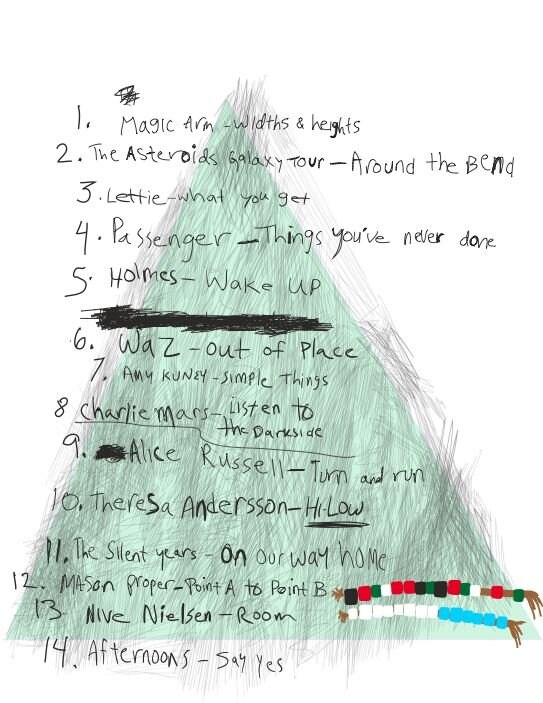 1. Magic Arm - Widths & heights
2. The Asteroids Galaxy Tour - Around the Bend
3. Lettie - what you get
4. Passenger - Things you've never done
5. Holmes - Wake UP
6. WaZ - out of Place
7. Amy Kuney - Simple Things
8 Charlie mars - Listen to
the Darkside
9. Alice Russell - Turn and run
10. Theresa Andersson - Hi-Low
11. The Silent years - on our way home
12. Mason Proper - Point A to Point B
13. Nive Nielsen - Room
14. Afternoons - Say yes